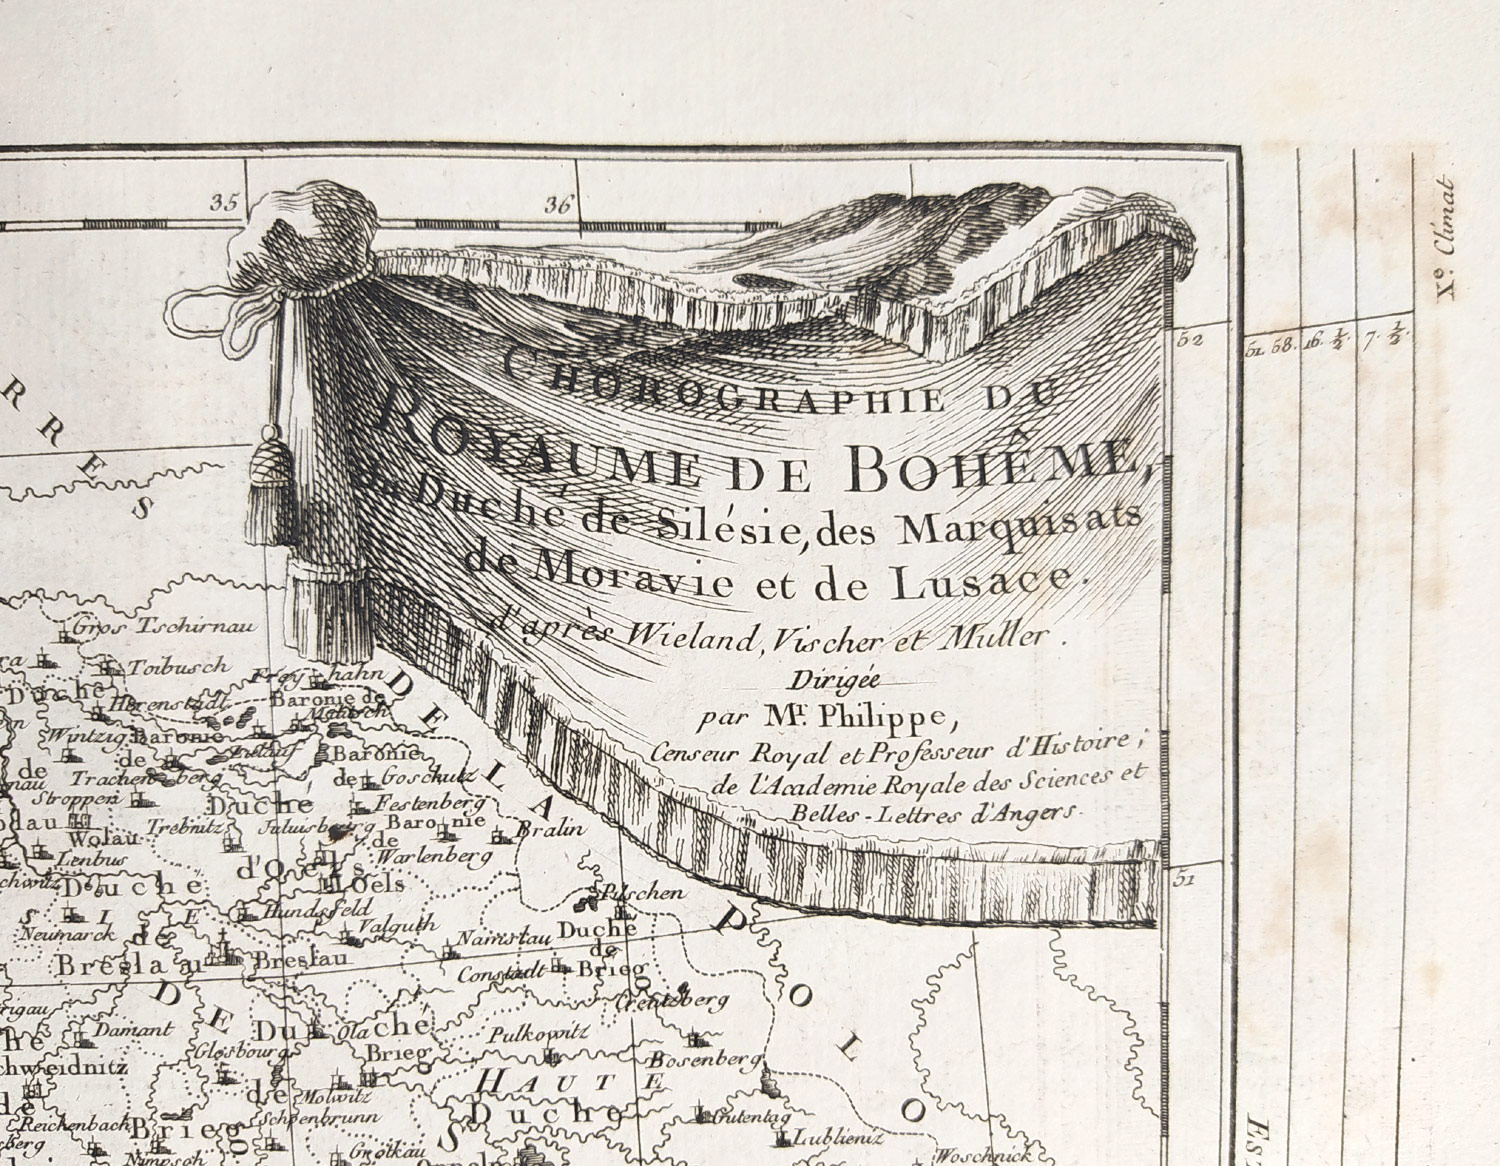 35
36
X.º Climat
52
61. 58. 16. ½. 7. ½.
CHOROGRAPHIE DU
ROYAUME DE BOHÊME,
du Duché de Silésie, des Marquisats
de Moravie et de Lusace.
d'après Wieland, Vischer et Muller.
Dirigée
par Mr. Philippe,
Censeur Royal et Professeur d'Histoire;
de l'Academie Royale des Sciences et
Belles-Lettres d'Angers.
51
RRES
DE LA
POLO
Gros Tschirnau
Toibusch
Duché
Herenstadt
Baronie de
Wintzig
Baronie
de
Baronie
de Goschutz
Trachenberg
Stroppen
Duché
Festenberg
Trebnitz
Juluisburg
Baronie
de
Wartenberg
Bralin
Wolau
Lenbus
d'Oels
Oels
Duché
Hundsfeld
Valguth
Neumarck
de
Breslau
Breslau
SILE
Pilschen
Namslau
Duché
de
Brieg
Constadt
Creutzberg
DE
Damant
Duché
Ola
Brieg
Pulkowitz
Bosenberg
Glosbourg
HAUTE
de
Molwitz
Duché
Schoenbrunn
Reichenbach
Brieg
Gutentag
Lublieniz
Nimpsch
Grotkau
Woschnick
S